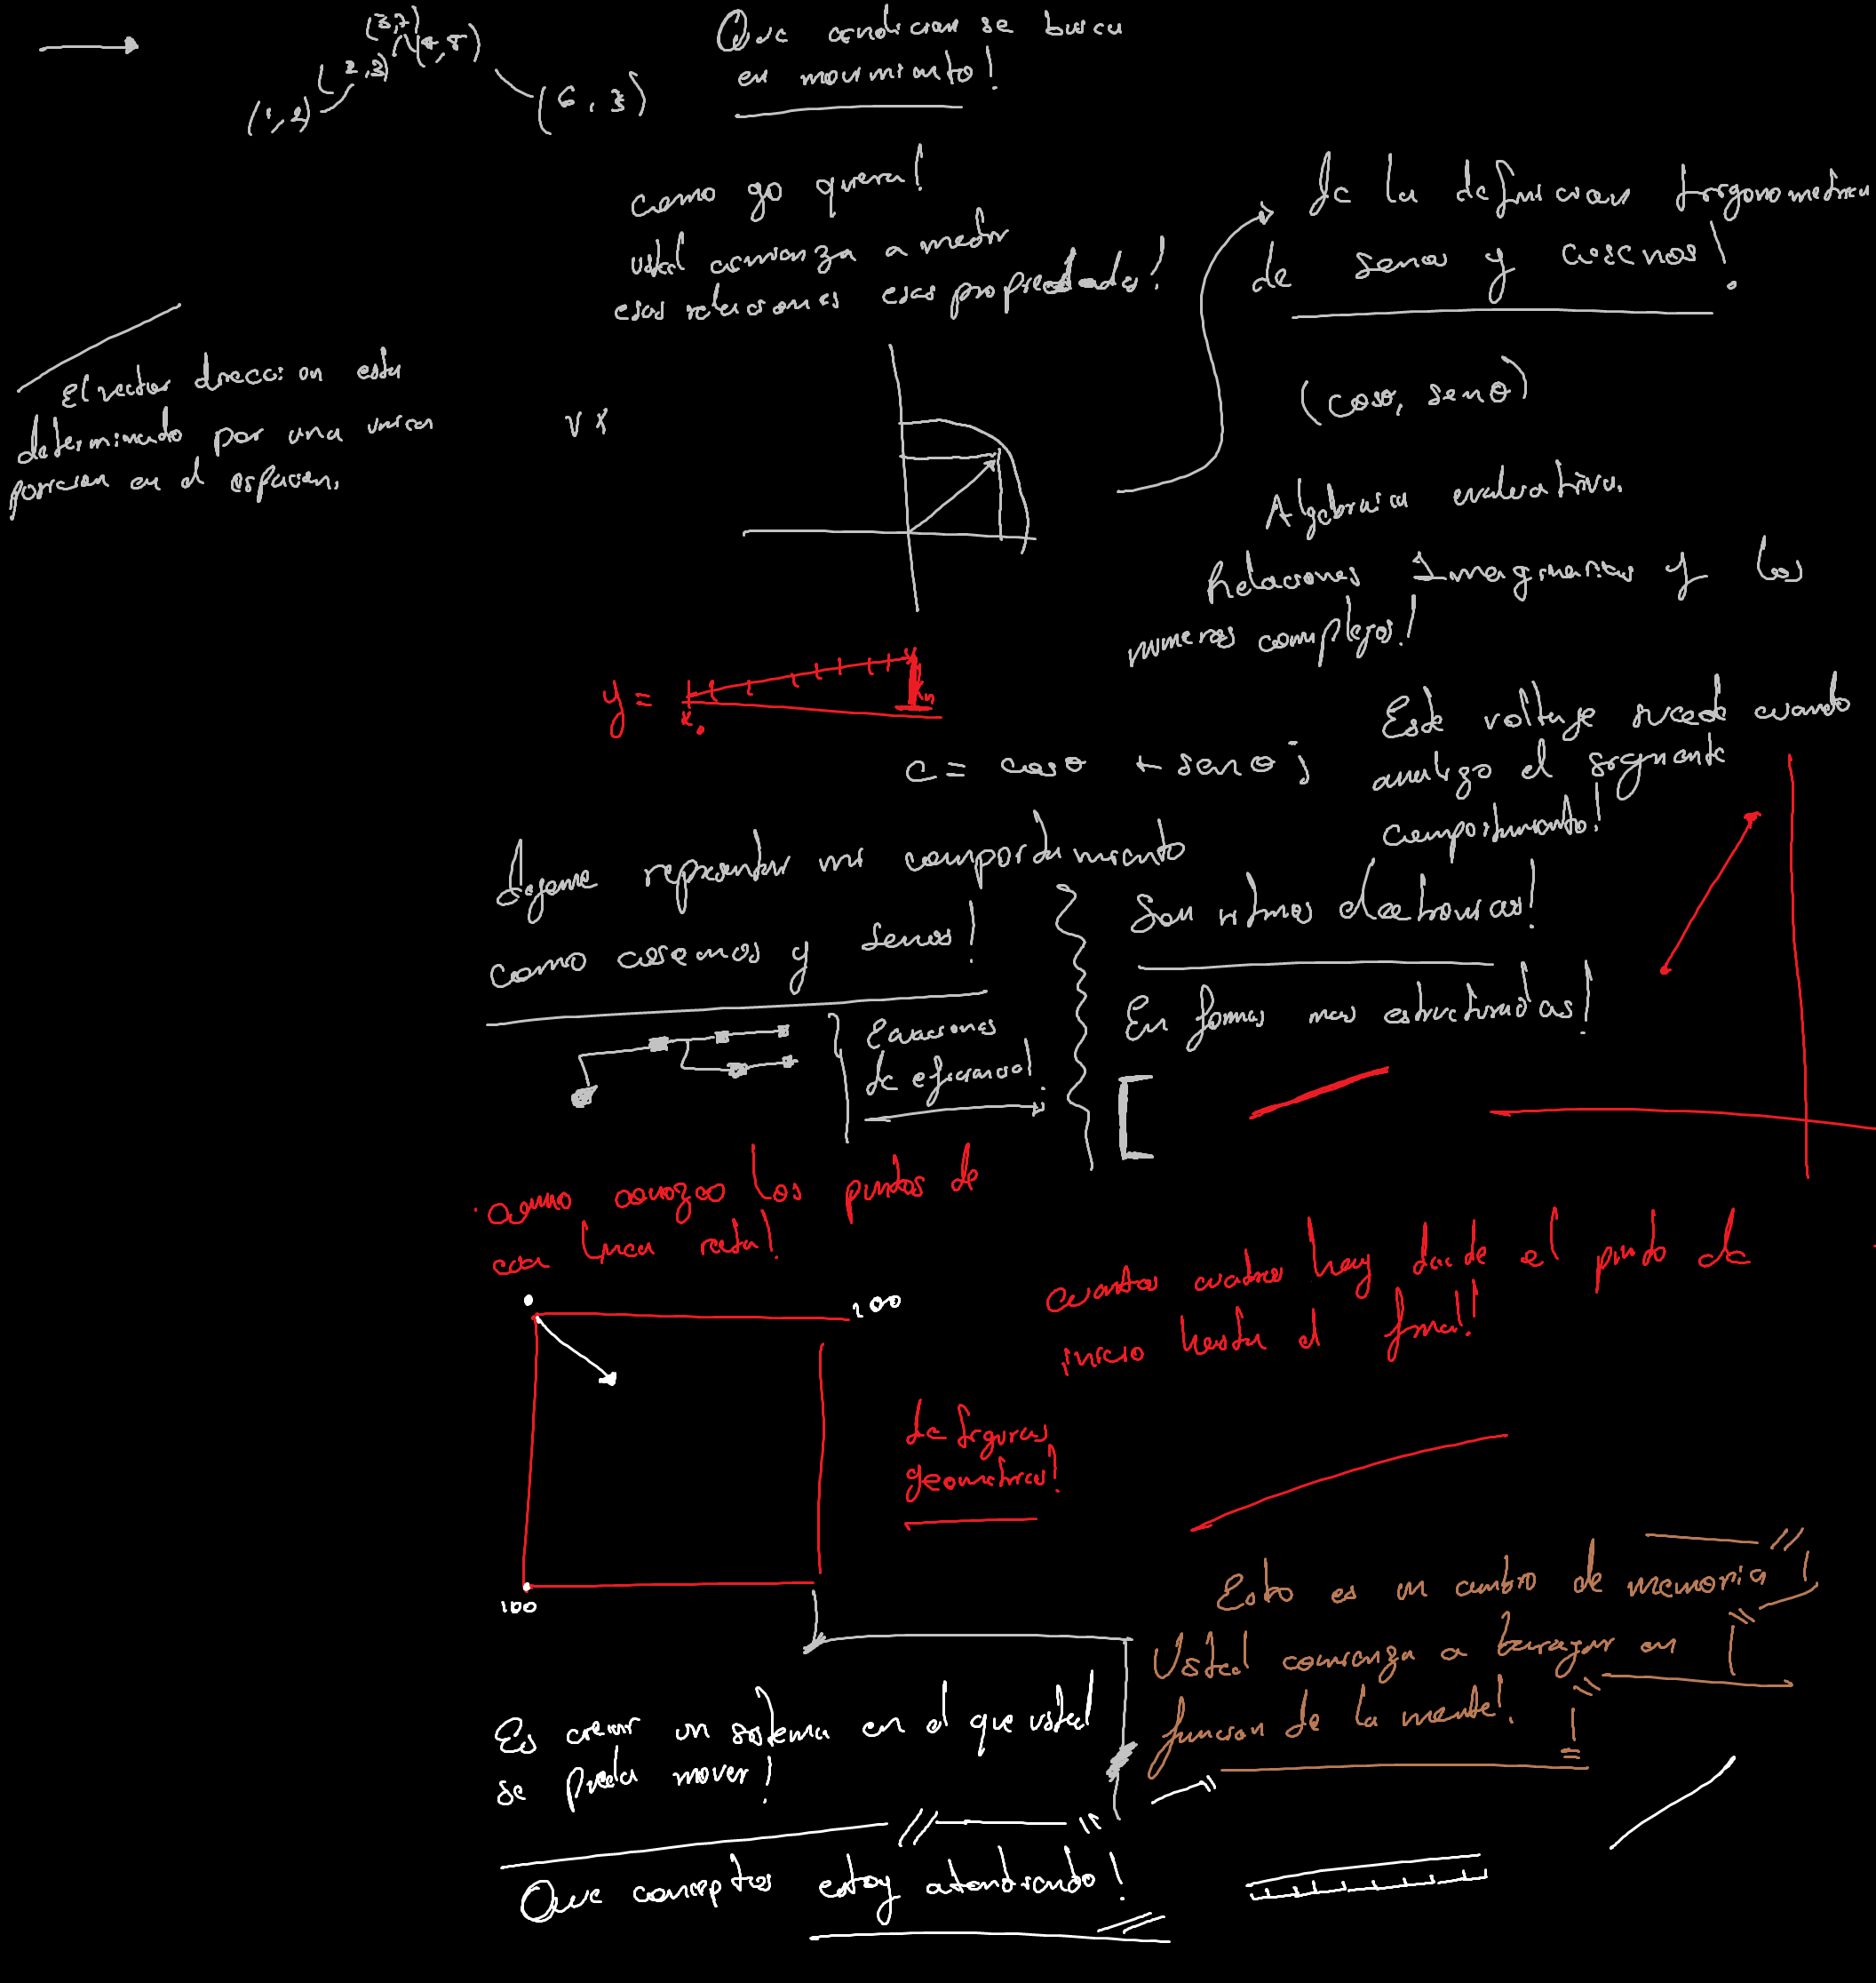 (3,7)
(4,8)
(2,3)
(1,2)
(6,3)
Que condicion se busca
en movimiento!
como yo quiera!
usted comienza a medir
esas relaciones esas propiedades!
De la definicion trigonometrica
de senos y cosenos!
(cosθ, senθ)
El vector direccion esta
determinado por una unica
posicion en el espacion.
v x
Algebraica evaluativa.
Relaciones Imaginarias y los
numeros complejos!
y =
x₀
xn
c = cosθ + senθ j
Este voltaje sucede cuando
analizo el siguiente
comportamiento!
dejeme representar mi comportamiento
como cosenos y senos!
Son ritmos electronicos!
En formas mas estructuradas!
Ecuaciones
de eficiencia!
como conozco los puntos de
esa linea recta!
cuantos cuadros hay desde el punto de
inicio hasta el final!
0
100
100
de figuras
geometricas!
Esto es un cambio de memoria!
Usted comienza a trabajar en
funcion de la mente!
Es crear un sistema en el que usted
se pueda mover!
Que conceptos estoy atendiendo!